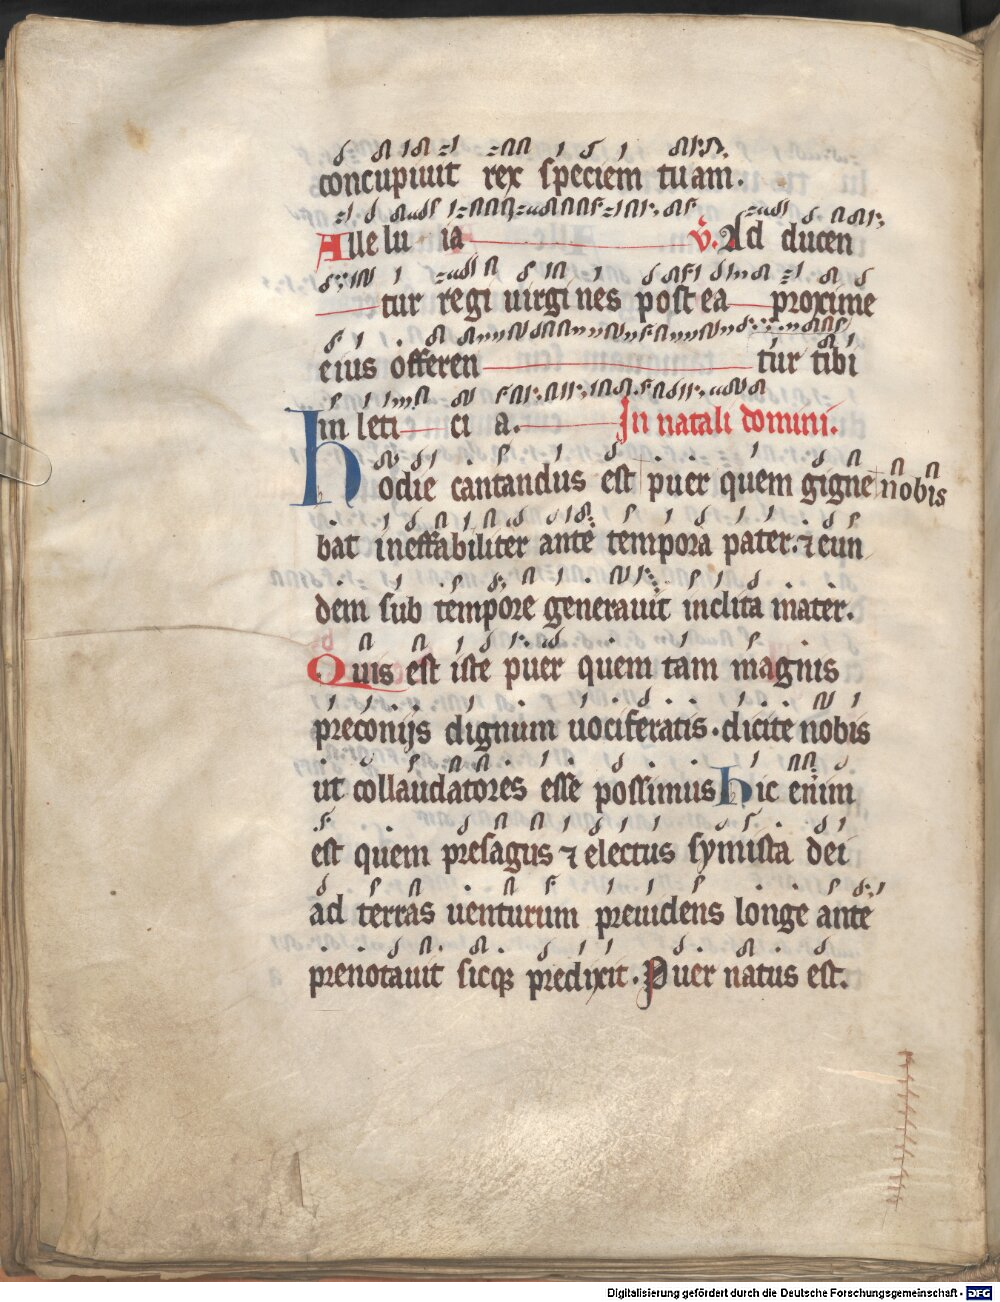 concupiuit rex speciem tuam.
Alle lu ia V. Ad ducen
tur regi uirgines post ea proxime
eius offeren tur tibi
in leti ci a. In natali domini.
hodie cantandus est puer quem gigne nobis
bat ineffabiliter ante tempora pater. ⁊ eun
dem sub tempore generauit inclita mater.
Quis est iste puer quem tam magnis
preconijs dignum uociferatis. dicite nobis
ut collaudatores esse possimus hic enim
est quem presagus ⁊ electus symista dei
ad terras uenturum preuidens longe ante
prenotauit sicqꝫ predixit. Puer natus est.
Digitalisierung gefördert durch die Deutsche Forschungsgemeinschaft - DFG